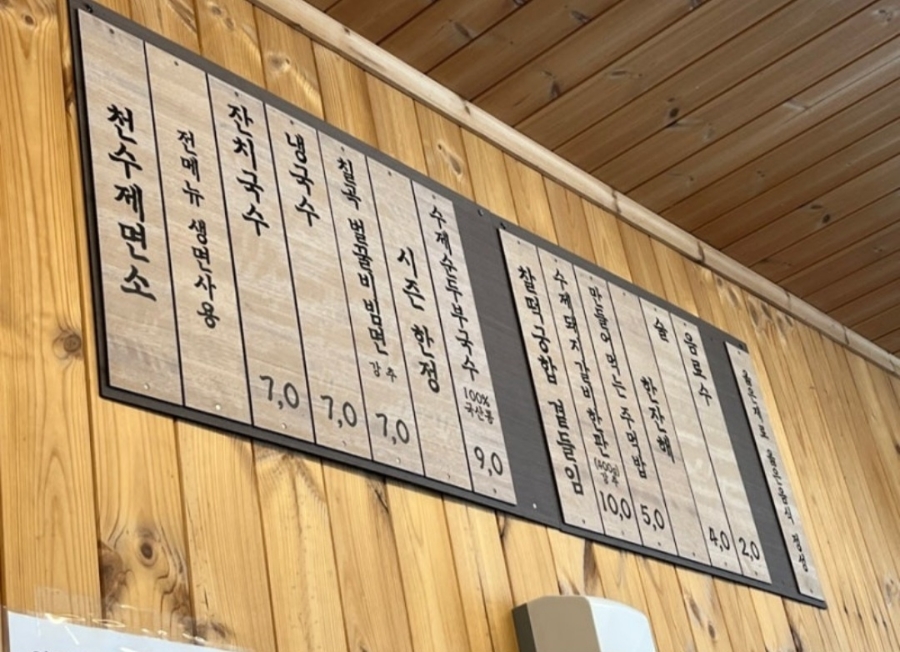 천수제면소
전메뉴 생면사용
잔치국수 7,0
냉국수 7,0
칠곡 벌꿀비빔면 강추 7,0
시즌 한정
수제순두부국수 100% 국산콩 9,0
찰떡궁합 곁들임
수제돼지갈비 한판 (400g) 강추 10,0
만들어먹는 주먹밥 5,0
술 한잔해 4,0
음료수 2,0
옳은재료 옳은음식 정성